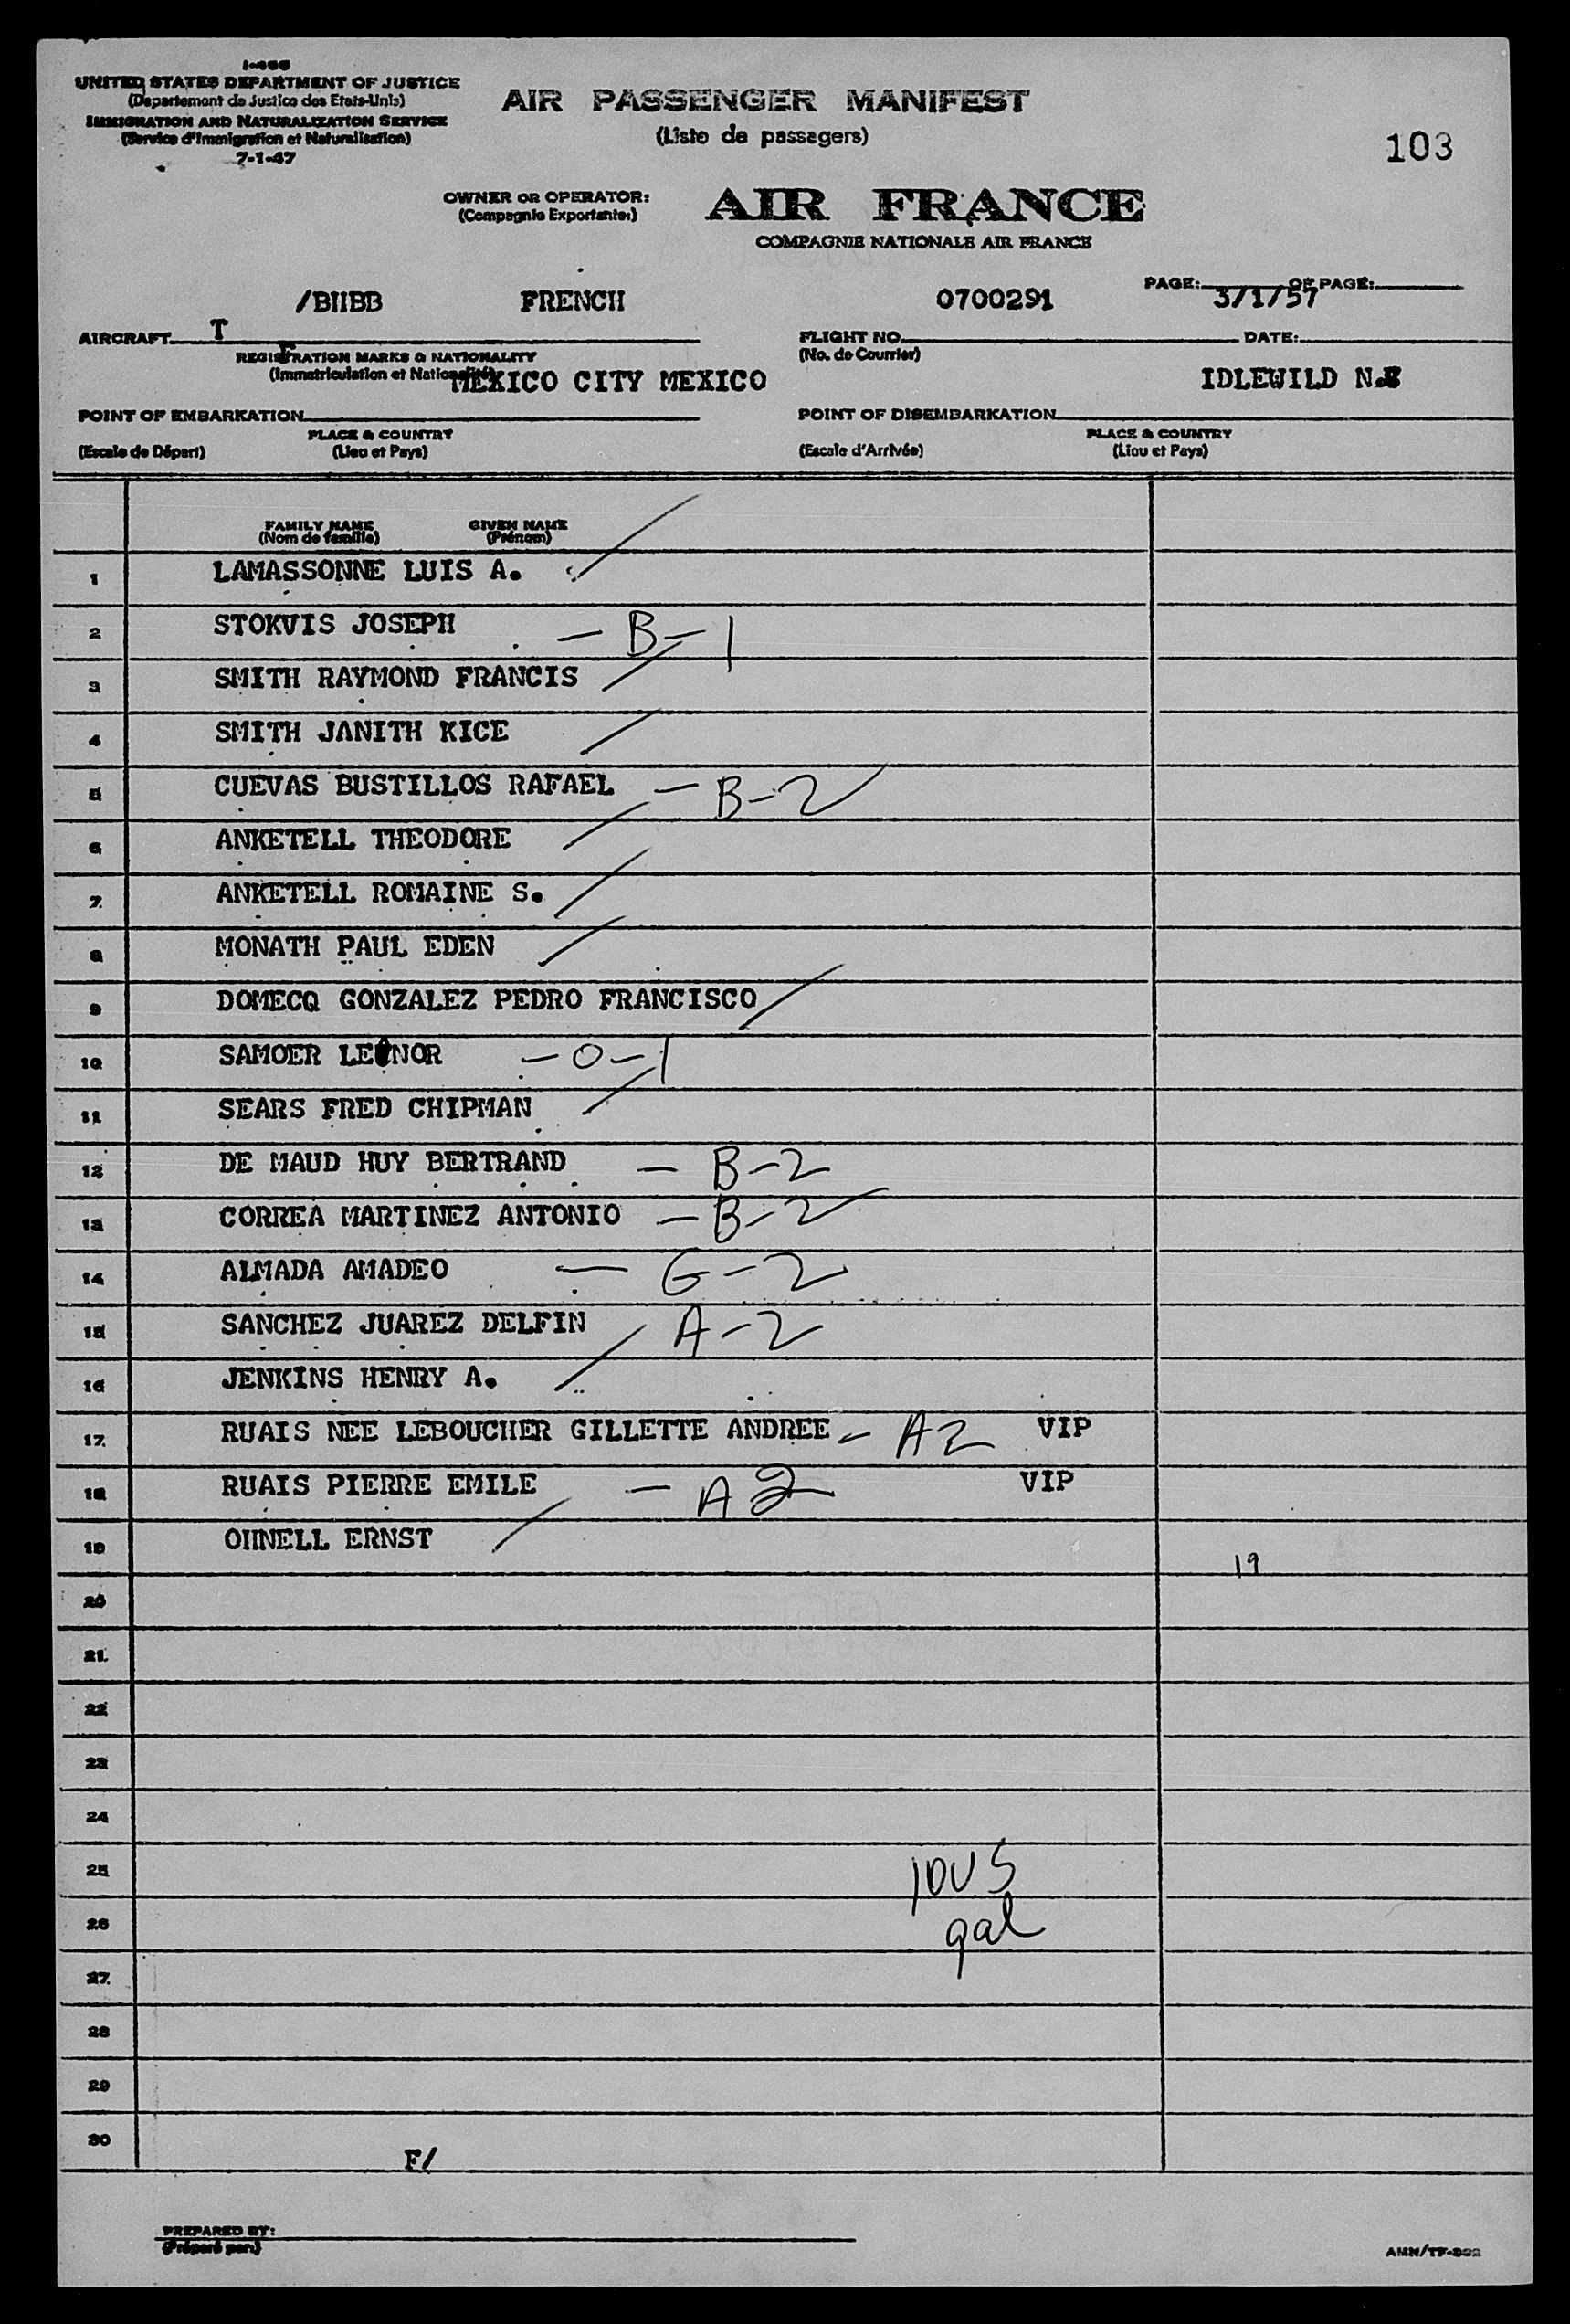 I-466
UNITED STATES DEPARTMENT OF JUSTICE
(Departement de Justice des Etats-Unis)
IMMIGRATION AND NATURALIZATION SERVICE
(Service d'Immigration et Naturalisation)
7-1-47
AIR PASSENGER MANIFEST
(Liste de passagers)
103
OWNER OR OPERATOR:
(Compagnie Exportante:)
AIR FRANCE
COMPAGNIE NATIONALE AIR FRANCE
PAGE: OF PAGE:
/BHBB FRENCH 0700291 3/1/57
AIRCRAFT T FLIGHT NO. DATE:
REGISTRATION MARKS & NATIONALITY (No. de Courrier)
(Immatriculation et Nationalité)
MEXICO CITY MEXICO IDLEWILD N.Y
POINT OF EMBARKATION POINT OF DISEMBARKATION
PLACE & COUNTRY PLACE & COUNTRY
(Escale de Départ) (Lieu et Pays) (Escale d'Arrivée) (Lieu et Pays)
FAMILY NAME GIVEN NAME
(Nom de famille) (Prénom)
1 LAMASSONNE LUIS A.
2 STOKVIS JOSEPH — B-1
3 SMITH RAYMOND FRANCIS
4 SMITH JANITH KICE
5 CUEVAS BUSTILLOS RAFAEL — B-2
6 ANKETELL THEODORE
7. ANKETELL ROMAINE S.
8 MONATH PAUL EDEN
9 DOMECQ GONZALEZ PEDRO FRANCISCO
10 SAMOER LEONOR — O-1
11 SEARS FRED CHIPMAN
12 DE MAUD HUY BERTRAND — B-2
13 CORREA MARTINEZ ANTONIO — B-2
14 ALMADA AMADEO — G-2
15 SANCHEZ JUAREZ DELFIN A-2
16 JENKINS HENRY A.
17. RUAIS NEE LEBOUCHER GILLETTE ANDREE - A2 VIP
18 RUAIS PIERRE EMILE — A2 VIP
19 OHNELL ERNST
19
20
21.
22
23
24
25 10US
26 gal
27.
28
29
30
F/
PREPARED BY:
(Préparé par:)